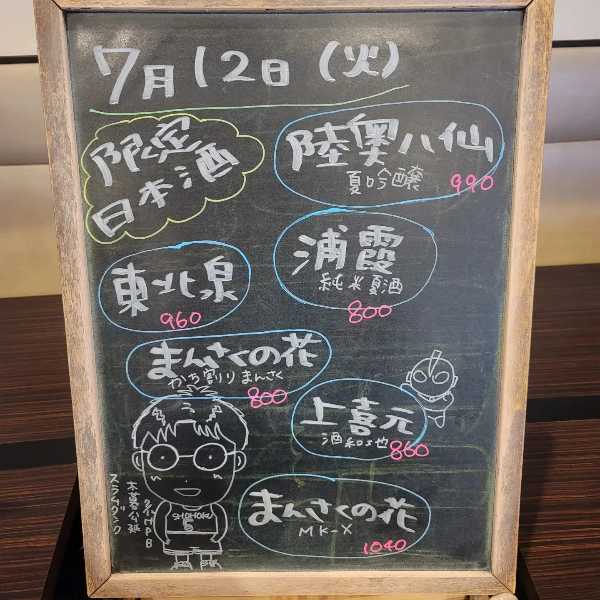 7月12日(火)
限定
日本酒
陸奥八仙
夏吟醸
990
浦霞
純米夏酒
800
東北泉
960
まんさくの花
かち割りまんさく
800
上喜元
酒和地也
860
まんさくの花
MK-X
1040
SHOHOKU
5
木暮公延
スラムダンク